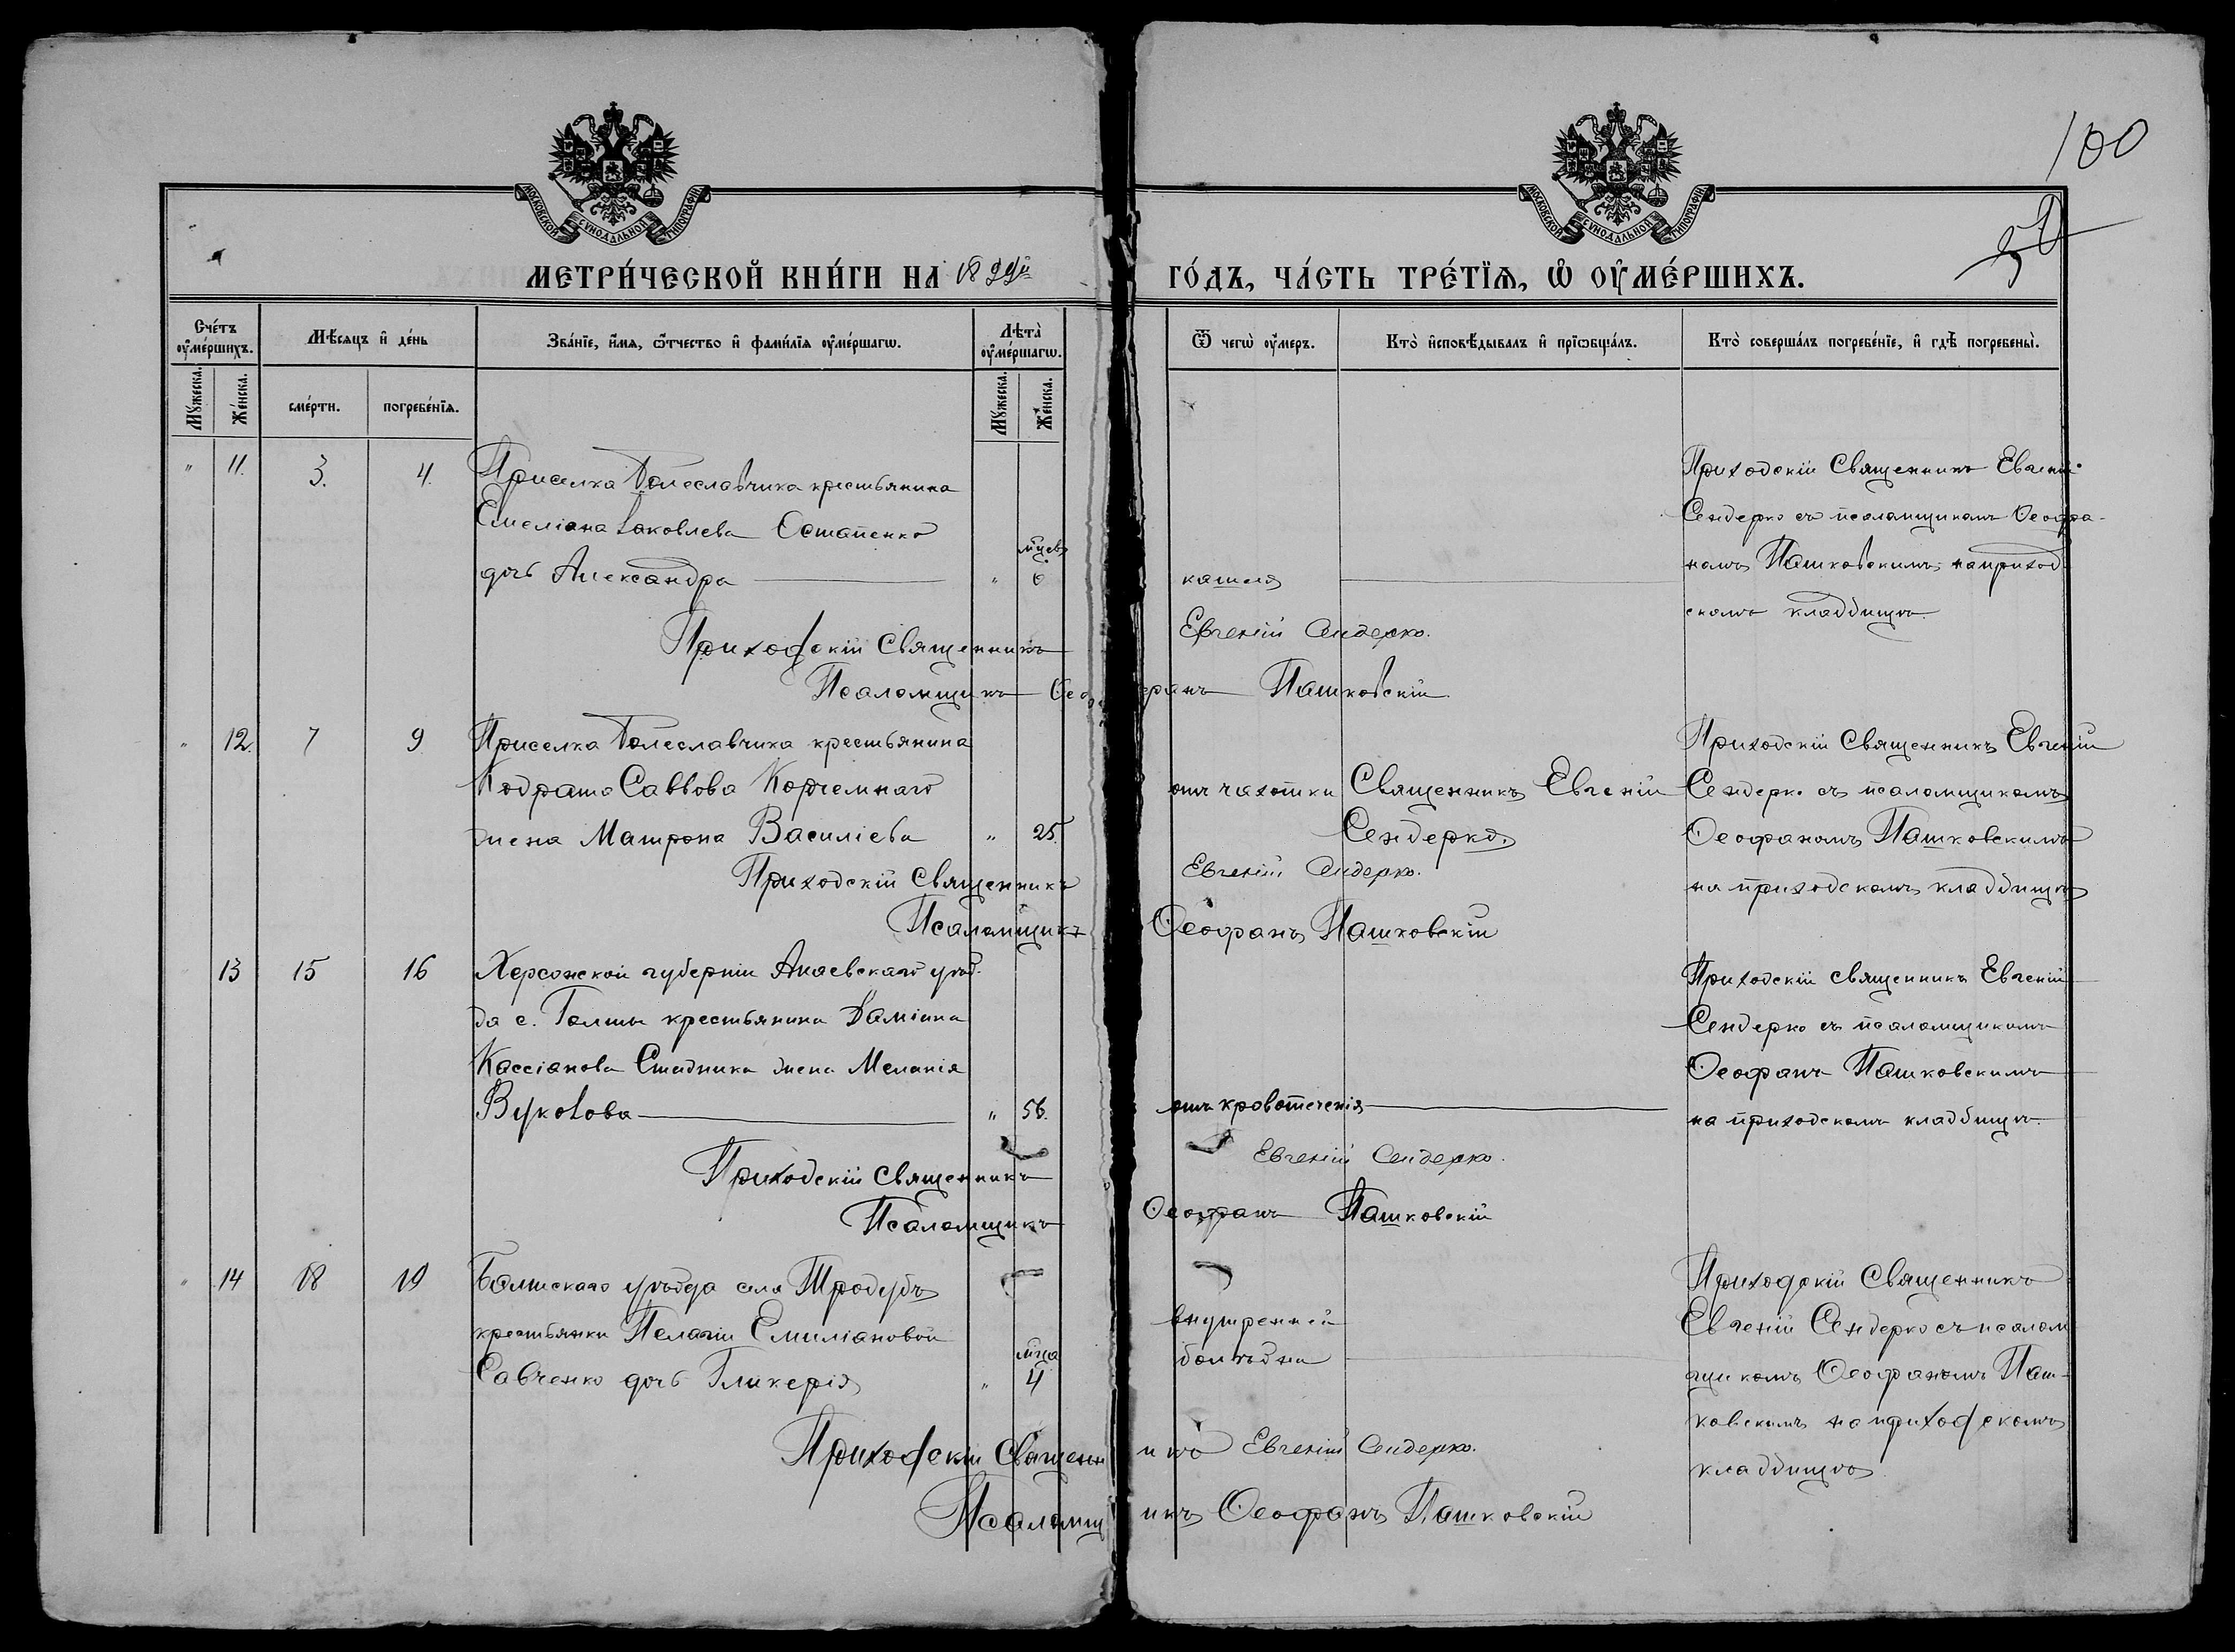 100
50
МОСКОВСКОЙ СѴНОДАЛЬНОЙ ТИПОГРАФІИ
МОСКОВСКОЙ СѴНОДАЛЬНОЙ ТИПОГРАФІИ
МЕТРИ́ЧЕСКОЙ КНИ́ГИ НА 1899й ГО́ДЪ, ЧА́СТЬ ТРЕ́ТІѦ, Ѽ ОУ҆МЕ́РШИХЪ.
Сче́тъ оу҆ме́ршихъ.
Мѣ́сяцъ и҆ де́нь
Зва́нїе, и҆́мѧ, ѻ҆́тчество и҆ фами́лїѧ оу҆ме́ршагѡ.
Лѣ̀та оу҆ме́ршагѡ.
Ѿ чегѡ̀ оу҆́меръ.
Кто̀ и҆сповѣ́дывалъ и҆ прїѡбща́лъ.
Кто̀ соверша́лъ погребе́нїе, и҆ гдѣ̀ погребены̀.
Мꙋ́жеска.
Же́нска.
сме́рти.
погребе́нїѧ.
Мꙋ́жеска.
Же́нска.
" 11. 3. 4. Приселка Болеславчика крестьянина
Емеліана Іаковлева Остапенко
дочь Александра " мцевъ 6 кашля
Приходскій Священникъ Евгеній
Сендерко съ псаломщикомъ Ѳеофа-
номъ Пашковскимъ на приход
скомъ кладбищѣ.
Приходскій Священникъ Евгеній Сендерко.
Псаломщикъ Ѳеофанъ Пашковскій
" 12. 7 9 Приселка Болеславчика крестьянина
Кодрата Саввова Корчемнаго
жена Матрона Василіева " 25. отъ чахотки
Священникъ Евгеній
Сендерко.
Приходскій Священникъ Евгеній
Сендерко съ псаломщикомъ
Ѳеофаномъ Пашковскимъ
на приходскомъ кладбищѣ
Приходскій Священникъ Евгеній Сендерко.
Псаломщикъ Ѳеофанъ Пашковскій
13 15 16 Херсонской губерніи Ананевскаго уѣз-
да с. Голты крестьянина Даміана
Кассіанова Стадника жена Меланія
" 56. отъ кровотеченія
Приходскій священникъ Евгеній
Сендерко съ псаломщикомъ
Ѳеофанъ Пашковскимъ
на приходскомъ кладбищѣ.
Приходскій священникъ Евгеній Сендерко.
Псаломщикъ Ѳеофанъ Пашковскій
" 14 18 19 Балтскаго уѣзда села
крестьянки Пелагіи Емиліановой
Савченко дочь Гликерія " мца 4 внутренней
болѣзни
Приходскій Священникъ
Евгеній Сендерко съ псалом
щикомъ Ѳеофаномъ Паш-
ковскимъ на приходскомъ
кладбищѣ
Приходскій Священникъ Евгеній Сендерко.
Псаломщикъ Ѳеофанъ Пашковскій